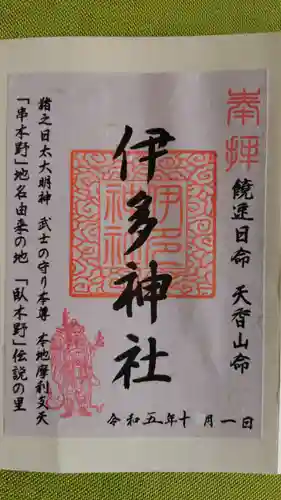 奉拝
饒速日命　天香山命
伊多神社
伊多神社
猪之日太大明神　武士の守り本尊　本地摩利支天
「串木野」地名由来の地　「臥木野」伝説の里
令和五年十月一日